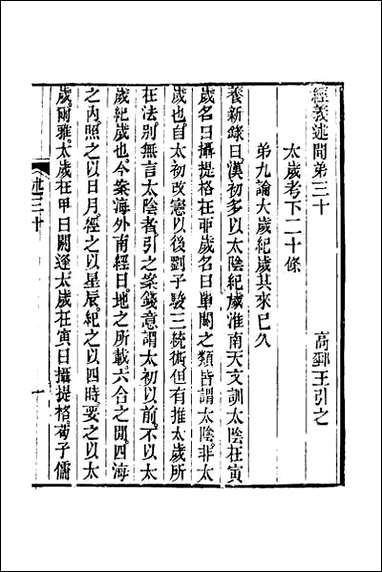 經義述聞弟三十
高郵王引之
太歲考下二十條
弟九論大歲紀歲其來已久
養新錄曰漢初多以太陰紀歲淮南天文訓太陰在寅
歲名曰攝提格在卯歲名曰單閼之類皆謂太陰非太
歲也自太初改憲以後劉子駿三統術但有推太歲所
在法別無言太陰者引之案錢意謂太初以前不以太
歲紀歲也今案海外南經曰地之所載六合之閒四海
之內照之以日月經之以星辰紀之以四時要之以太
歲爾雅太歲在甲曰閼逢太歲在寅曰攝提格荀子儒
述三十
一